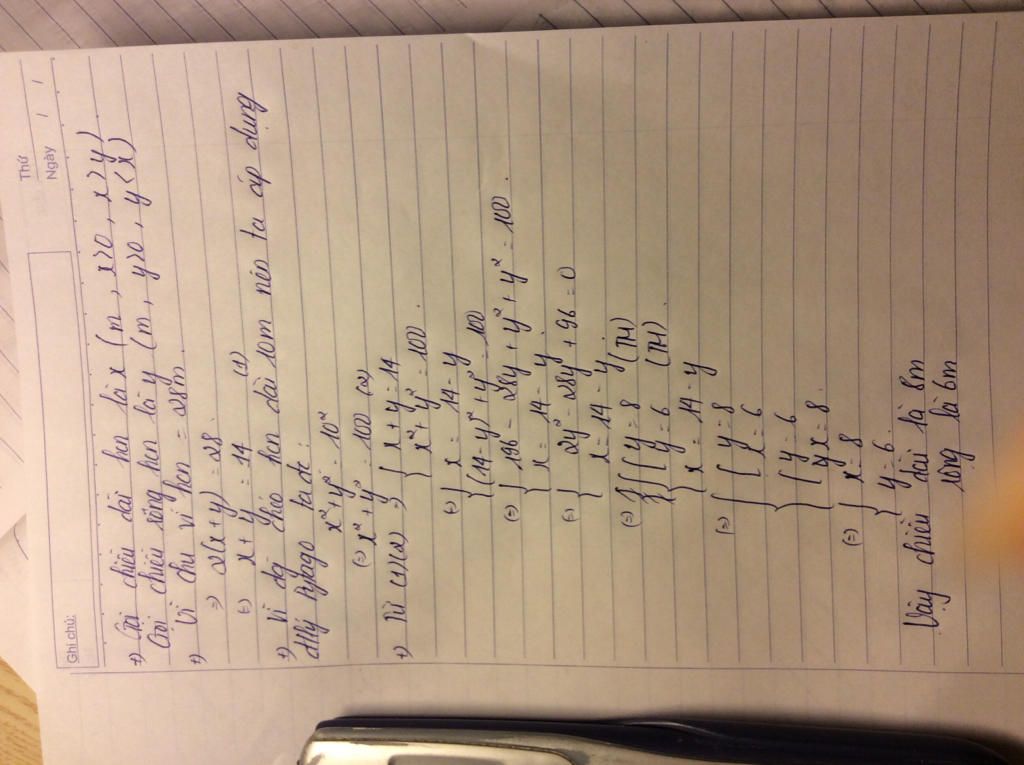 Thứ
Ngày / /
Ghi chú:
+) Gọi chiều dài hcn là x (m, x>0, x>y)
Gọi chiều rộng hcn là y (m, y>0, y<x)
+) Vì chu vi hcn = 28m
=> 2(x+y) = 28
(=) x+y = 14 (1)
+) Vì đg chéo hcn dài 10m nên ta áp dụng
đlý Pytago ta đc:
x²+y² = 10²
(=) x²+y² = 100 (2)
+) Từ (1)(2) => { x+y = 14
{ x²+y² = 100.
(=) { x = 14-y
{ (14-y)²+y² = 100
(=) { 196-28y+y²+y² = 100.
{ x = 14-y
(=) { 2y²-28y+96 = 0
{ x = 14-y
(=) { [ y = 8 (TH)
{ [ y = 6 (TH)
{ x = 14-y
(=) { [ y = 8
[ x = 6
{ [ y = 6
[ x = 8.
(=) { x = 8
{ y = 6.
Vậy chiều dài là 8m
rộng là 6m